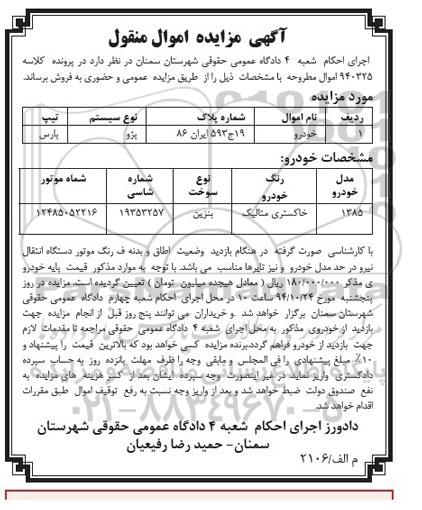 آگهی مزایده اموال منقول
اجرای احکام شعبه ۴ دادگاه عمومی حقوقی شهرستان سمنان در نظر دارد در پرونده کلاسه
۹۴۰۳۲۵ اموال مطروحه با مشخصات ذیل را از طریق مزایده عمومی و حضوری به فروش برساند.
مورد مزایده
ردیف نام اموال شماره پلاک نوع سیستم تیپ
۱ خودرو ۱۹ج۵۹۳ ایران ۸۶ پژو پارس
مشخصات خودرو:
مدل خودرو رنگ خودرو نوع سوخت شماره شاسی شماه موتور
۱۳۸۵ خاکستری متالیک بنزین ۱۹۳۵۳۲۵۷ ۱۲۴۸۵۰۵۲۲۱۶
با کارشناسی صورت گرفته در هنگام بازدید وضعیت اطاق و بدنه ف رنگ موتور دستگاه انتقال
نیرو در حد مدل خودرو و نیز تایرها مناسب می باشد. با توجه به موارد مذکور قیمت پایه خودرو
ی مذکر ۱۸۰/۰۰۰/۰۰۰ ریال ( معادل هیجده میلیون تومان ) تعیین گردیده است. مزایده در روز
پنجشنبه مورخ ۹۴/۱۰/۲۴ ساعت ۱۰ در محل اجرای احکام شعبه چهارم دادگاه عمومی حقوقی
شهرستان سمنان برگزار خواهد شد .و خریداران می توانند پنج روز قبل از انجام مزایده جهت
بازدید از خودروی مذکور به محل اجرای شعبه ۴ دادگاه عمومی حقوقی مراجعه تا مقدمات لازم
جهت بازدید از خودرو فراهم گردد.برنده مزایده کسی خواهد بود که بالاترین قیمت را پیشنهاد و
۱۰٪ مبلغ پیشنهادی را فی المجلس و مابقی وجه را ظرف مهلت پانزده روز به حساب سپرده
دادگستری واریز نماید. در غیر اینصورت وجه سپرده ایشان بعد از کسر هزینه های مزایده به
نفع صندوق دولت ضبط خواهد شد و بعد از واریز وجه نسبت به رفع توقیف اموال طبق مقررات
اقدام خواهد شد.
دادورز اجرای احکام شعبه ۴ دادگاه عمومی حقوقی شهرستان
سمنان- حمید رضا رفیعیان
م الف/۲۱۰۶
۰۲۱-۸۸۳۴۹۶۷۰-۵